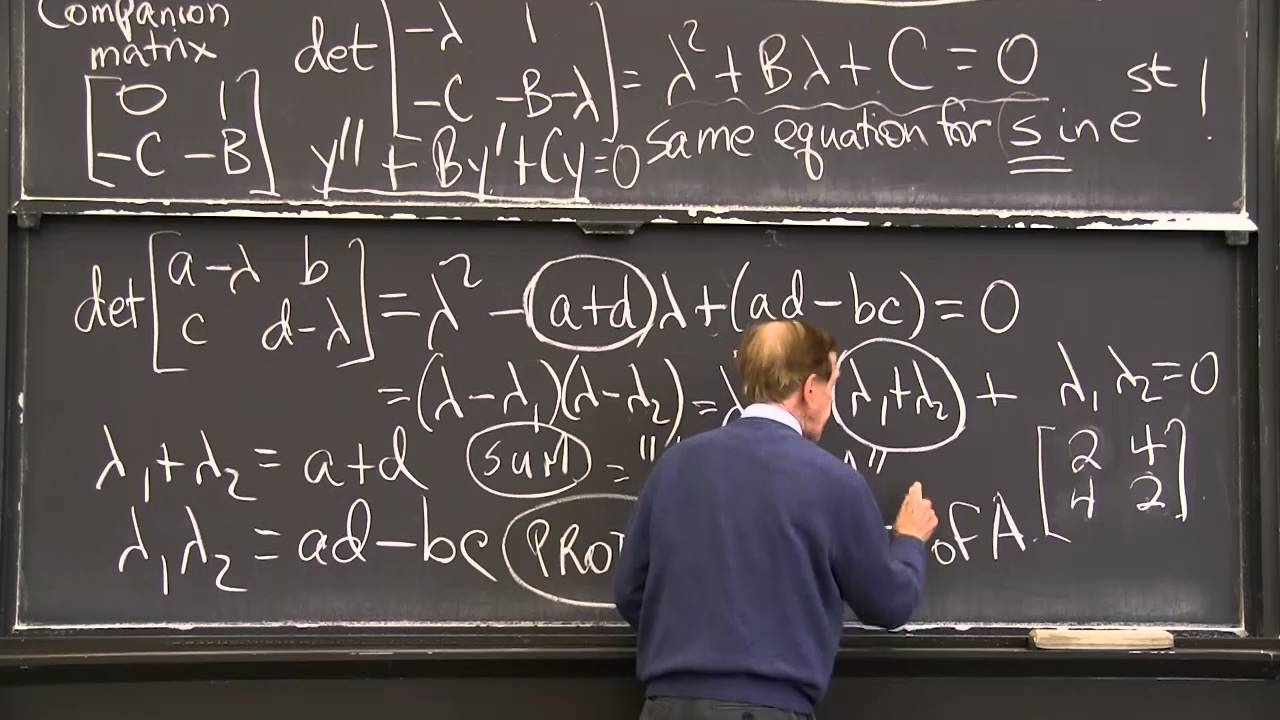 Companion
matrix
[0 1
-C -B]
det [-λ 1
-C -B-λ] = λ² + Bλ + C = 0
y'' + By' + Cy = 0
same equation for s in e^st !
det [a-λ b
c d-λ] = λ² - (a+d)λ + (ad-bc) = 0
= (λ-λ₁)(λ-λ₂) = λ (λ₁+λ₂) + λ₁λ₂ = 0
λ₁+λ₂ = a+d SUM = "
λ₁λ₂ = ad-bc of A
[2 4
4 2]